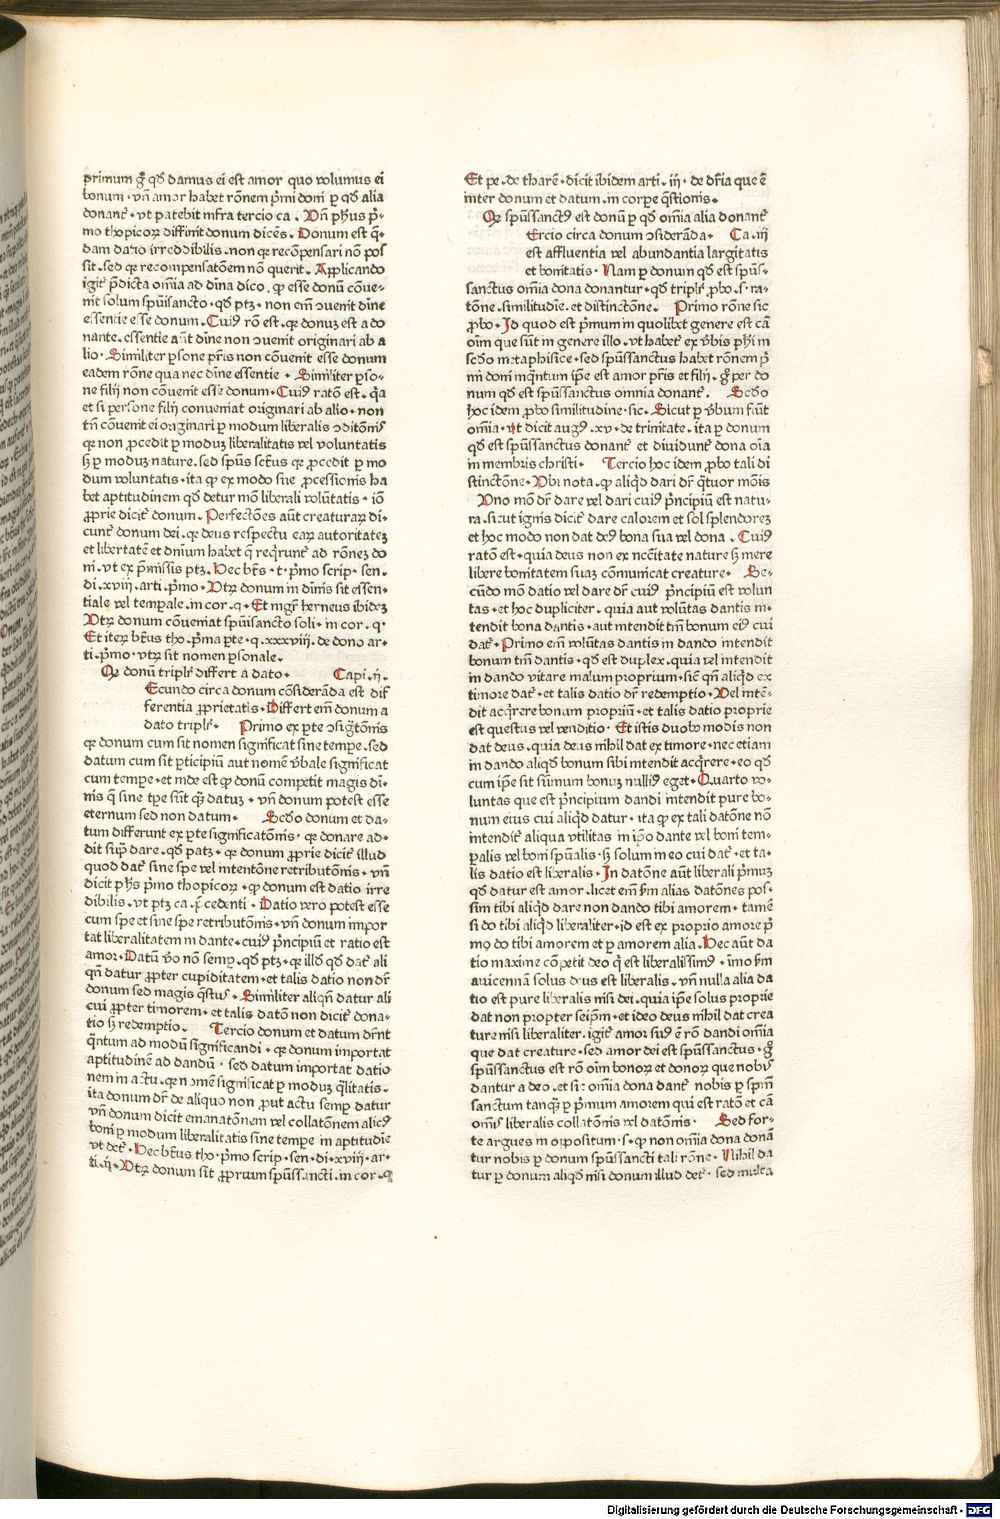 primum gͦ qđ damus ei est amor quo volumus ei
bonum · vñ amor habet rōnem p̄mi doni ꝑ qđ alia
donant᷑ · vt patebit infra tercio ca . Vñ phus p̄-
mo thopicoꝝ diffinit donum dicēs . Donum est q̄-
dam datio irreddibilis . non ꝙ recōpensari nō pos
sit . sed ꝙ recompensatōem nō querit . Applicando
igit᷑ p̄dicta om̄ia ad diͥna dico . ꝙ esse donū cōue-
nit solum spūisancto . qđ ptꝫ . non em̄ ↄuenit diͥne
essentie esse donum . Cuiꝰ rō est . ꝙ donuꝫ est a do
nante . essentie aūt diͥne non ↄuenit originari ab a
lio . Similiter ꝑsone pr̄is non cōuenit esse donum
eadem rōne qua nec diͥne essentie . Similiter ꝑso-
ne filij non cōuenit esse donum . Cuiꝰ ratō est . q̄a
et si ꝑsone filij conueniat originari ab alio . non
tn̄ cōuenit ei originari ꝑ modum liberalis ↄditōnis
ꝙ non ꝓcedit ꝑ moduꝫ liberalitatis vel voluntatis
sꝫ ꝑ moduꝫ nature . sed spūs sct̄us ꝙ ꝓcedit ꝑ mo
dum voluntatis . ita ꝙ ex modo sue ꝓcessionis ha
bet aptitudinem qđ detur mō liberali volūtatis . iō
ꝓprie dicit᷑ donum . Perfectōes aūt creaturaꝝ di-
cunt᷑ donum dei . ꝙ deus respectu eaꝝ autoritateꝫ
et libertatē et dn̄ium habet q̄ req̄runt᷑ ad rōneꝫ do
ni . vt ex p̄missis ptꝫ . Hec bt̄s . t . p̄mo scrip . sen .
di . xviij . arti . p̄mo . Vtꝝ donum in diͥnis sit essen-
tiale vel temꝑale . in cor . q . Et mgr̄ herneus ibideꝫ
Vtꝝ donum cōueniat spūisancto soli . in cor . q .
Et iteꝝ bt̄us tho . p̄ma ꝑte . q . xxxviij . de dono ar-
ti . p̄mo . vtꝝ sit nomen ꝑsonale .
Ꝙ donū triplr̄ differt a dato . Capi . ij .
Secundo circa donum cōsiderāda est dif
ferentia ꝓprietatis . Differt em̄ donum a
dato triplr̄ . Primo ex ꝑte ↄsigͥtōnis
ꝙ donum cum sit nomen significat sine tempe . sed
datum cum sit ꝑticipiū aut nomē v̄bale significat
cum tempe . et inde est ꝙ donū competit magis diͥ-
nis q̄ sine tꝑe sūt qͣꝫ datuꝫ . vñ donum potest esse
eternum sed non datum . Scđo donum et da-
tum differunt ex ꝑte significatōnis . ꝙ donare ad-
dit suꝑ dare . qđ patꝫ . ꝙ donum ꝓprie dicit᷑ illud
quod dat᷑ sine spe vel intentōne retributōnis . vñ
dicit phs p̄mo thopicoꝝ . ꝙ donum est datio irre
dibilis . vt ptꝫ ca . p̄cedenti . Datio vero potest esse
cum spe et sine spe retributōnis . vñ donum impor
tat liberalitatem in dante . cuiꝰ p̄ncipiū et ratio est
amor . Datū v̄o nō semꝑ . qđ ptꝫ . ꝙ illđ qđ dat᷑ ali
qn̄ datur ꝓpter cupiditatem . et talis datio non dr̄
donum sed magis q̄stus . Similiter aliqn̄ datur ali
cui ꝓpter timorem . et talis datō non dicit᷑ dona-
tio sꝫ redemptio . Tercio donum et datum dr̄nt
q̄ntum ad modū significandi . ꝙ donum importat
aptitudinē ad dandū . sed datum importat datio
nem in actu . ꝙ nomē significat ꝑ moduꝫ q̄litatis .
ita donum dr̄ de aliquo non ꝓut actu semꝑ datur
vñ donum dicit emanatōnem vel collatōnem alicꝰ
boni ꝑ modum liberalitatis sine tempe in aptitudie
vt det᷑ . Hec bt̄us tho . p̄mo scrip . sen . di . xviij . ar-
ti . ij . Vtꝝ donum sit ꝓprium spūssancti . in cor . q
Et pe . de tharē . dicit ibidem arti . iij . de dr̄ia que ē
inter donum et datum . in corpe q̄stionis .
Ꝙ spūssanctꝰ est donū ꝑ qđ om̄ia alia donant᷑
Tercio circa donum ↄsiderāda . Ca . iij
est affluentia vel abundantia largitatis
et bonitatis . Nam ꝑ donum qđ est spūs-
sanctus om̄ia dona donantur . qđ triplr̄ ꝓbo . s . ra-
tōne . similitudīe . et distinctōne . Primo rōne sic
ꝓbo . Id quod est p̄mum in quolibet genere est cā
oīm que sūt in genere illo . vt habet᷑ ex v̄bis phi in
scđo metaphisice . sed spūssanctus habet rōnem p̄
mi doni inq̄ntum ip̄e est amor pr̄is et filij . gͦ per do
num qđ est spūssanctus omnia donant᷑ . Scđo
hoc idem ꝓbo similitudine . sic . Sicut ꝑ v̄bum fiūt
om̄ia . vt dicit augꝰ . xv . de trinitate . ita ꝑ donum
qđ est spūssanctus donant᷑ et diuidunt᷑ dona oīa
in membris christi . Tercio hoc idem ꝓbo tali di
stinctōne . Vbi nota . ꝙ aliqͥd dari dr̄ qͣtuor mōis
Vno mō dr̄ dare vel dari cuiꝰ p̄ncipiū est natu-
ra . sicut ignis dicit᷑ dare calorem et sol splendoreꝫ
et hoc modo non dat deꝰ bona sua vel dona . Cuiꝰ
ratō est . quia deus non ex nc̄itate nature sꝫ mere
libere bonitatem suaꝫ cōmunicat creature . Se-
cūdo mō datio vel dare dr̄ cuiꝰ p̄ncipiū est volun
tas . et hoc dupliciter . quia aut volūtas dantis in-
tendit bona dantis . aut intendit tm̄ bonum eiꝰ cui
dat᷑ . Primo em̄ volūtas dantis in dando intendit
bonum tm̄ dantis . qđ est duplex . quia vel intendit
in dando vitare malum proprium . sic qn̄ aliqͥd ex
timore dat᷑ . et talis datio dr̄ redemptio . Vel inten-
dit acq̄rere bonum propriū . et talis datio proprie
est questus vel venditio . Et istis duobꝰ modis non
dat deus . quia deus nihil dat ex timore . nec etiam
in dando aliqđ bonum sibi intendit acq̄rere . eo qđ
cum ip̄e sit sūmum bonuꝫ nulliꝰ eget . Quarto vo-
luntas que est p̄ncipium dandi intendit pure bo-
num eius cui aliqͥd datur . ita ꝙ ex tali datōne nō
intendit᷑ aliqua vtilitas in ip̄o dante vel boni tem-
ꝑalis vel boni spūalis . sꝫ solum in eo cui dat᷑ . et ta-
lis datio est liberalis . In datōne aūt liberali p̄muꝫ
qđ datur est amor . licet em̄ scđm alias datōnes pos-
sim tibi aliqͥd dare non dando tibi amorem . tamē
si do tibi aliqͥd liberaliter . id est ex proprio amore p̄
mo do tibi amorem et ꝑ amorem alia . Hec aūt da
tio maxime cōpetit deo q̄ est liberalissimꝰ . imo scđm
auicennā solus deus est liberalis . vñ nulla alia da
tio est pure liberalis nisi dei . quia ip̄e solus proprie
dat non propter seip̄m . et ideo deus nihil dat crea
ture nisi liberaliter . igit᷑ amor suꝰ ē rō dandi om̄ia
que dat creature . sed amor dei est spūssanctus . gͦ
spūssanctus est rō oīm bonoꝝ et donoꝝ que nobis
dantur a deo . et sic om̄ia dona dant᷑ nobis ꝑ spm̄
sanctum tanqͣꝫ ꝑ p̄mum amorem qui est ratō et cā
om̄is liberalis collatōnis vel datōnis . Sed for-
te argues in oppositum . s . ꝙ non om̄ia dona donā
tur nobis ꝑ donum spūssancti tali rōne . Nihil da
tur ꝑ donum aliqđ nisi donum illud det᷑ . sed multa
Digitalisierung gefördert durch die Deutsche Forschungsgemeinschaft - DFG